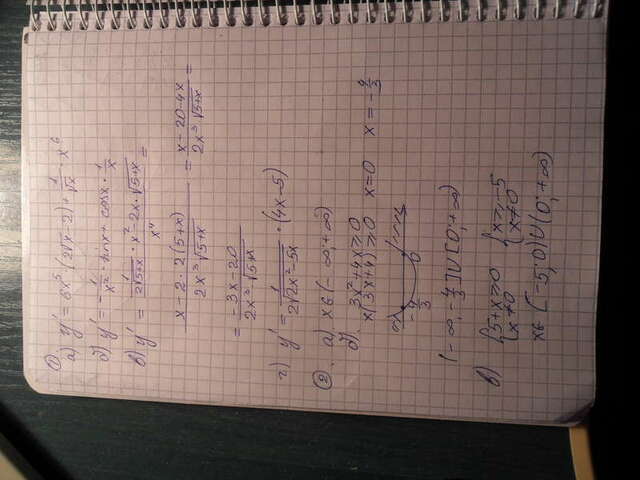 ①
а) y' = 6x⁵ · (2√x − 2) + 1/√x · x⁶
б) y' = −1/x² · sin x + cos x · 1/x
в) y' = (1/(2√(5+x)) · x² − 2x · √(5+x)) / x⁴ =
(x − 2 · 2(5+x)) / (2x³√(5+x)) = (x − 20 − 4x) / (2x³√(5+x)) =
= (−3x − 20) / (2x³√(5+x))
г) y' = 1/(2√(2x² − 5x)) · (4x − 5)
② а) x ∈ (−∞; +∞)
б) 3x² + 4x ≥ 0
x(3x + 4) ≥ 0 x = 0 x = −4/3
−4/3 0
(−∞; −4/3] ∪ [0; +∞)
в) {5 + x ≥ 0 {x ≥ −5
{x ≠ 0 {x ≠ 0
x ∈ [−5; 0) ∪ (0; +∞)